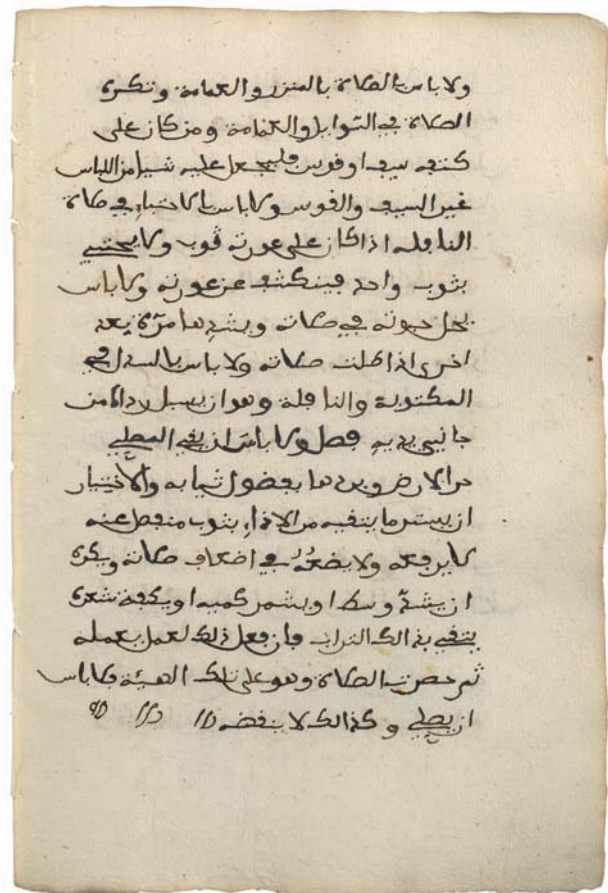 ولا باس بالصلاة بالمئزر والعمامة وتكره
الصلاة في السراويل والعمامة ومن كان على
كتفه سيف او قوس فليجعل عليه شيا من اللباس
غير السيف والقوس ولا باس بالاحتباء في صلاة
النافلة اذا كان على عورته ثوب ولا يحتبي
بثوب واحد فينكشف عن عورته ولا باس
بحل حبوته في صلاته ويشدها مرة بعد
اخرى اذا طلت صلاته ولا باس بالسدل في
المكتوبة والنافلة وهو ان يسبل رداه من
جانبي يديه فصل ولا باس ان يقي المصلي
حر الارض وبردها بفضول ثيابه والاختيار
ان يستر ما يتقيه من الاذاء بثوب منفصل عنه
لا يرفعه ولا يضعه في اضعاف صلاته ويكره
ان يشد وسطه او يشمر كميه او يكفة شعره
يتقي بذالك التراب فان فعل ذلك لعمل يعمله
ثم حضرت الصلاة وهو على تلك الهيئة فلا باس
ان يصلي وكذالك لا ينقضه